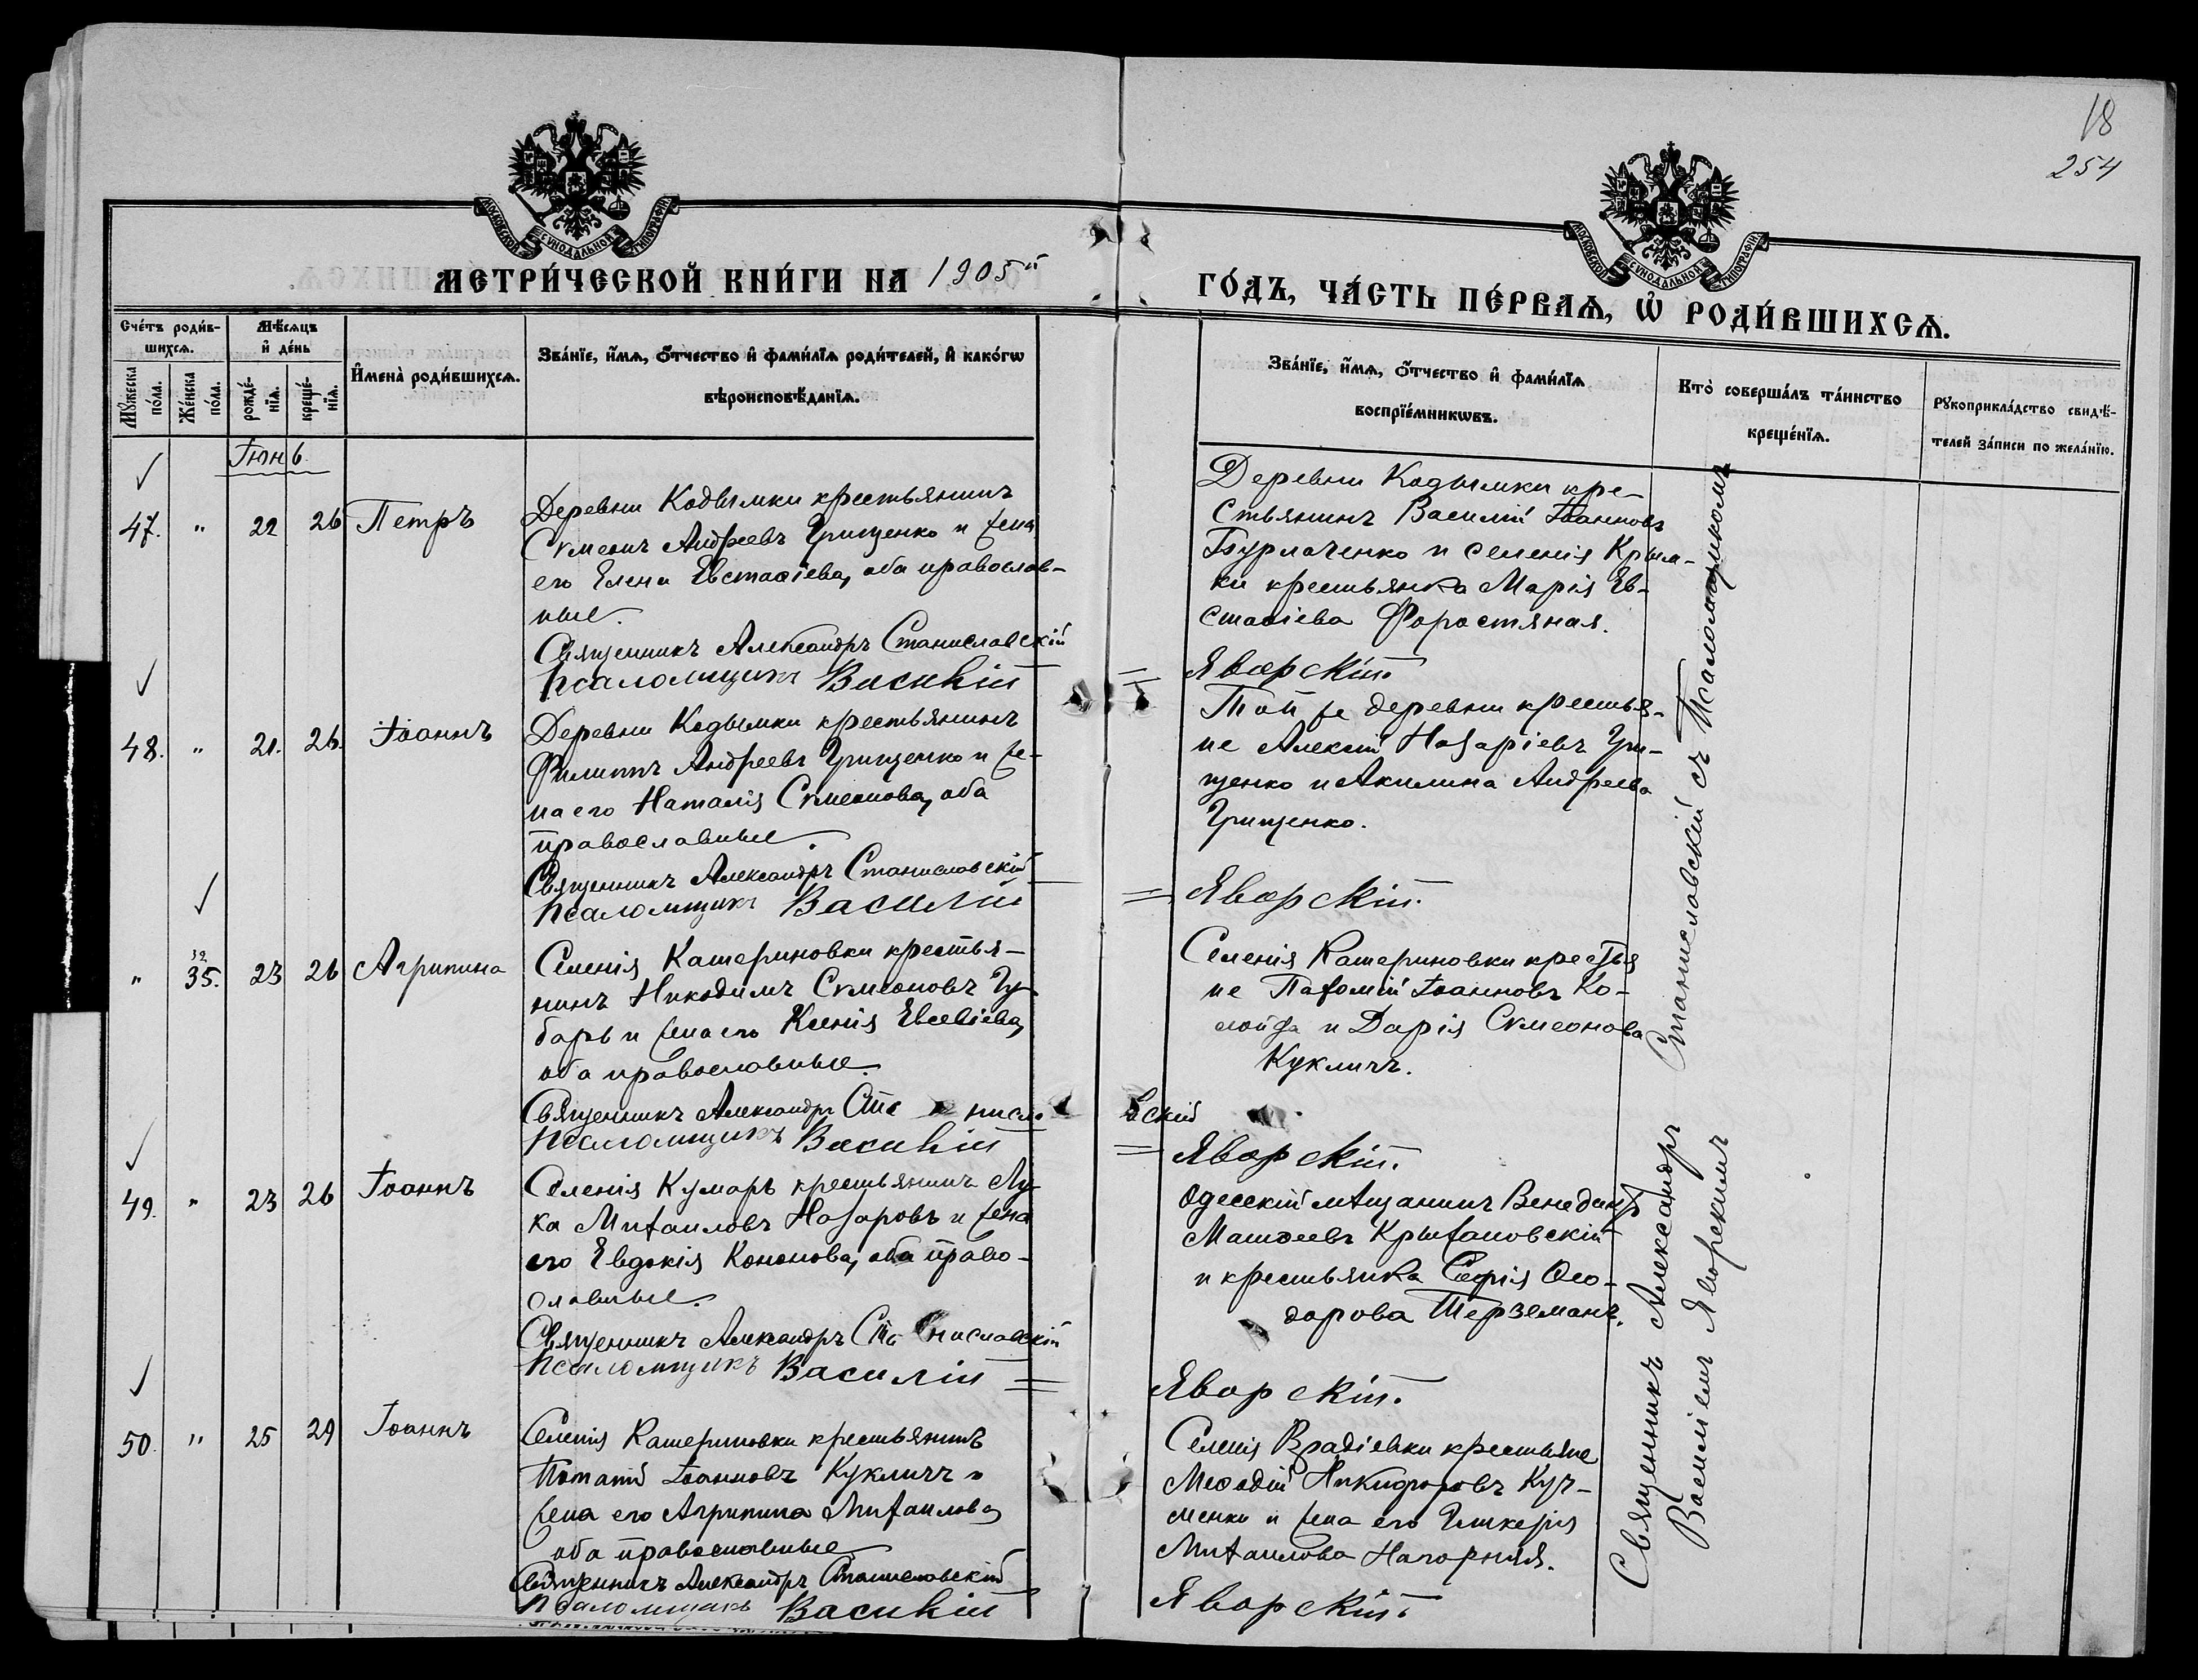 18
254
МОСКОВСКОЙ СѴНОДАЛЬНОЙ ТИПОГРАФІИ
МОСКОВСКОЙ СѴНОДАЛЬНОЙ ТИПОГРАФІИ
МЕТРИ́ЧЕСКОЙ КНИ́ГИ НА 1905й
ГО́ДЪ, ЧА́СТЬ ПЕ́РВАѦ, Ѽ РОДИ́ВШИХСѦ.
Сче́тъ роди́в-
шихсѧ.
Мꙋ́жеска по́ла.
Же́нска по́ла.
Мѣ́сѧцъ
и҆ де́нь
рожде́-
нїѧ.
креще́-
нїѧ.
И҆мена̀ роди́вшихсѧ.
Зва́нїе, и҆́мѧ, ѻ҆́тчество и҆ фами́лїѧ роди́телей, и҆ како́гѡ
вѣроисповѣ́данїѧ.
Зва́нїе, и҆́мѧ, ѻ҆́тчество и҆ фами́лїѧ
воспрїе́мникѡвъ.
Кто̀ соверша́лъ та́инство
креще́нїѧ.
Рꙋкоприкла́дство свидѣ́-
телей за́писи по жела́нїю.
Іюнь
47. " 22 26 Петръ
Деревни Кодымки крестьянинъ
Сѵмеонъ Андреевъ Грищенко и жена
его Елена Евстаѳіева, оба православ-
ные.
Священникъ Александръ Станиславскій
Псаломщикъ Василій
Деревни Кодымки кре-
стьянинъ Василій Іоанновъ
Бурлаченко и селенія Крым-
ки крестьянка Марія Ев-
стаѳіева Форостяная.
Яворскій.
48. " 21. 26. Іоаннъ
Деревни Кодымки крестьянинъ
Филиппъ Андреевъ Грищенко и же-
на его Наталія Сѵмеонова, оба
православные.
Священникъ Александръ Станиславскій
Псаломщикъ Василій
Той же деревни крестья-
не Алексій Назаріевъ Гри-
щенко и Акилина Андреева
Грищенко.
Яворскій.
" 35. 23 26 Агрипина
Селенія Катериновки крестья-
нинъ Никодимъ Сѵмеоновъ Гу-
барь и жена его Ксенія Евсевіева,
оба православные.
Священникъ Александръ Станисла
вскій
Псаломщикъ Василій
Селенія Катериновки крестья
не Пахомій Іоанновъ Ко-
лойда и Дарія Сѵмеонова
Кукличъ.
Яворскій.
49. " 23 26 Іоаннъ
Селенія Кумаръ крестьянинъ Лу-
ка Михаиловъ Назаровъ и жена
его Евдокія Кононова, оба право-
славные.
Священникъ Александръ Станиславскій
Псаломщикъ Василій
Одесскій мѣщанинъ Венедиктъ
Матѳеевъ Крыжановскій
и крестьянка Софія Ѳео-
дорова Терземанъ.
Яворскій.
50. " 25 29 Іоаннъ
Селенія Катериновки крестьянинъ
Потапій Іоанновъ Кукличъ и
жена его Агрипина Михаилова
оба православные
Священникъ Александръ Станиславскій
Псаломщикъ Василій
Селенія Врадіевки крестьяне
Меѳодій Никифоровъ Куч-
менко и жена его Гликерія
Михаилова Нагорняя.
Яворскій.
Священникъ Александръ Станиславскій съ Псаломщикомъ
Василіемъ Яворскимъ